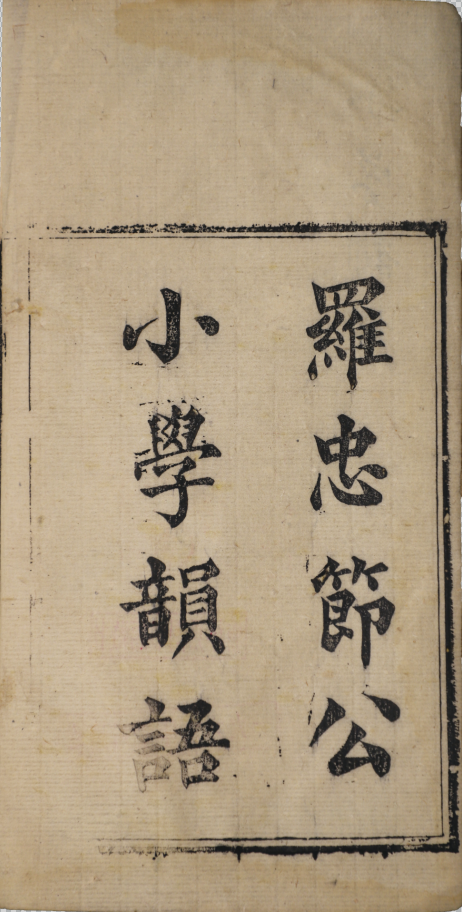 羅忠節公
小學韻語